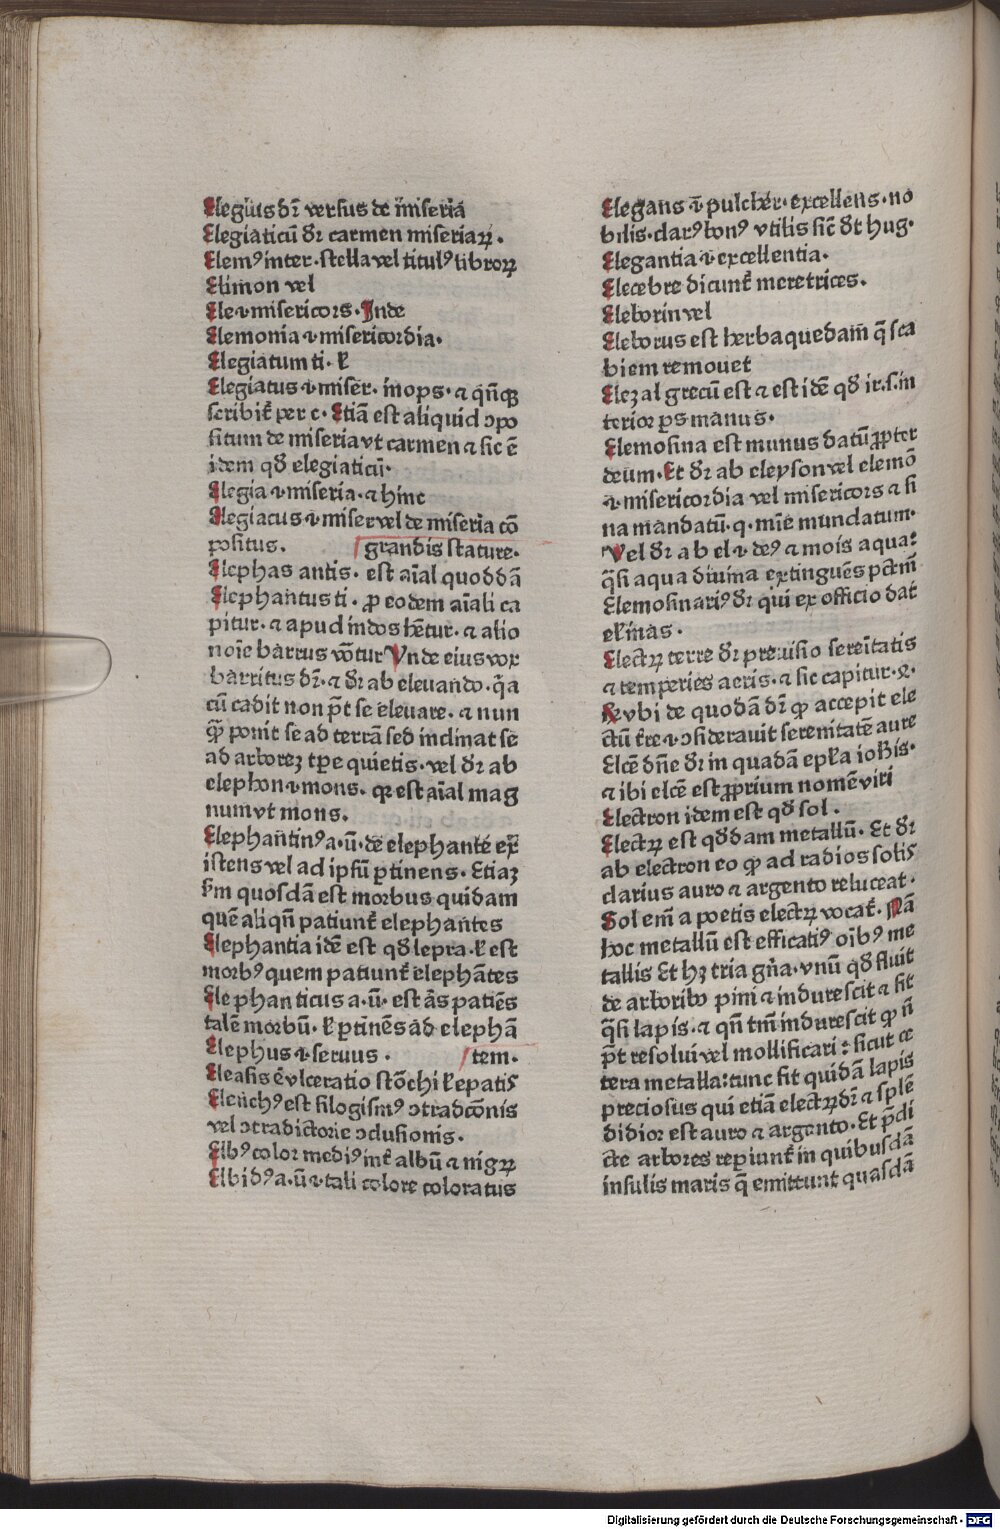 Elegius dr̄ versus de miseria
Elegiaticū dr̄ carmen miseriaꝝ.
Elemꝰ inter·stella vel titulꝰ libroꝝ
Elimon vel
Ele·i·misericors·Inde
Elemonia·i·misericordia·
Elegiatum ti·ł
Elegiatus·i·miser·inops·⁊ qn̄qꝫ
scribit̉ per e·Etiā est aliquid ↄpo
situm de miseria vt carmen ⁊ sic ē
idem qd̄ elegiaticū·
Elegia·i·miseria·⁊ hinc
Elegiacus·i·miser vel de miseria cō
positus. grandis stature·
Elephas antis·est aīal quoddā
Elephantus ti·ꝓ eodem aīali ca
pitur·⁊ apud indos hr̄tur·⁊ alio
noīe barrus vōtur Vnde eius vox
barritus dr̄·⁊ dr̄ ab eleuando·q̄a
cū cadit non pt̄ se eleuare·⁊ nun
qꝫ ponit se ad terrā sed inclinat se
ad arborez tp̄e quietis·vel dr̄ ab
elephon·i·mons·qꝛ est aīal mag
num vt mons.
Elephantinꝰ a·ū·de elephante ex̄
istens vel ad ipsū ꝑtinens·Etiaꝫ
s̄m quosdā est morbus quidam
quē aliqn̄ patiunt̉ elephantes
Elephantia idē est qd̄ lepra·ł est
morbꝰ quem patiunt̉ elephātes
Elephanticus a·ū·est aīs patiēs
talē morbū·ł ꝑtinēs ad elephā
Elephus·i·seruus· tem·
Eleasis ē vlceratio stōchi ł epatis
Elenchꝰ est silogismꝰ ↄtradcōnis
vel ↄtradictorie ↄclusionis.
Elbꝰ color mediꝰ int̉ albū ⁊ nigꝝ
Elbidꝰ a·ū·i·tali colore coloratus
Elegans·i·pulcher·excellens·no
bilis·clarꝰ bonꝰ vtilis sic̄ dt̄ hug·
Elegantia·i·excellentia·
Elecebre dicunt̉ meretrices.
Eleborin vel
Eleborus est herba quedam q̄ sca
biem remouet
Elezal grecū est ⁊ est idē qd̄ ir·s·in
terior ꝑs manus·
Elemosina est munus datū ꝓpter
deum·Et dr̄ ab eleyson vel elemō
·i·misericordia vel misericors ⁊ si
na mandatū·q·mīe mundatum·
Vel dr̄ ab el·i·deꝰ ⁊ mois aqua:
q̄si aqua diuina extinguēs pctm̄
Elemosinariꝰ dr̄ qui ex officio dat
ełinas·
Electꝝ terre dr̄ preuisio sereītatis
⁊ temperies aeris·⁊ sic capitur·⁊·
R̄ vbi de quodā dr̄ ꝙ accepit ele
ctū t̄re·i·ↄsiderauit serenitatē aure
Elcē dn̄e dr̄ in quadā epł̄a ioh̄is·
⁊ ibi elcē est ꝓprium nomē viri
Electron idem est qd̄ sol.
Electꝝ est qd̄dam metallū·Et dr̄
ab electron eo ꝙ ad radios solis
clarius auro ⁊ argento reluceat·
Sol em̄ a poetis electꝝ vocat̉·Nā
hoc metallū est efficatiꝰ oībꝰ me
tallis Et hꝫ tria gn̄a·vnū qd̄ fluit
de arboribꝰ pini ⁊ indurescit ⁊ fit
q̄si lapis·⁊ qn̄ tm̄ indurescit ꝙ n̄
pt̄ resolui vel mollificari: sicut ce
tera metalla: tunc fit quidā lapis
preciosus qui etiā electꝝ dr̄ ⁊ splē
didior est auro ⁊ argento·Et p̄di
cte arbores reperiunt̉ in quibusdā
insulis maris q̄ emittunt quasdā
Digitalisierung gefördert durch die Deutsche Forschungsgemeinschaft - DFG